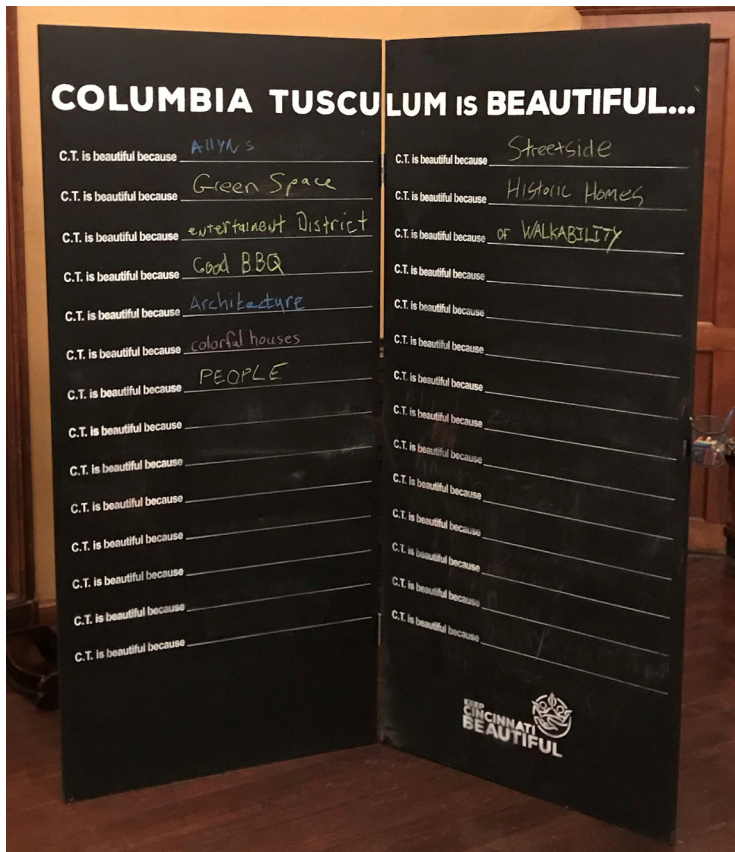 COLUMBIA TUSCULUM IS BEAUTIFUL...
C.T. is beautiful because Allyns
C.T. is beautiful because Green Space
C.T. is beautiful because entertainment District
C.T. is beautiful because Good BBQ
C.T. is beautiful because Architecture
C.T. is beautiful because colorful houses
C.T. is beautiful because PEOPLE
C.T. is beautiful because
C.T. is beautiful because
C.T. is beautiful because
C.T. is beautiful because
C.T. is beautiful because
C.T. is beautiful because
C.T. is beautiful because
C.T. is beautiful because Streetside
C.T. is beautiful because Historic Homes
C.T. is beautiful because of WALKABILITY
C.T. is beautiful because
C.T. is beautiful because
C.T. is beautiful because
C.T. is beautiful because
C.T. is beautiful because
C.T. is beautiful because
C.T. is beautiful because
C.T. is beautiful because
C.T. is beautiful because
C.T. is beautiful because
C.T. is beautiful because
KEEP
CINCINNATI
BEAUTIFUL